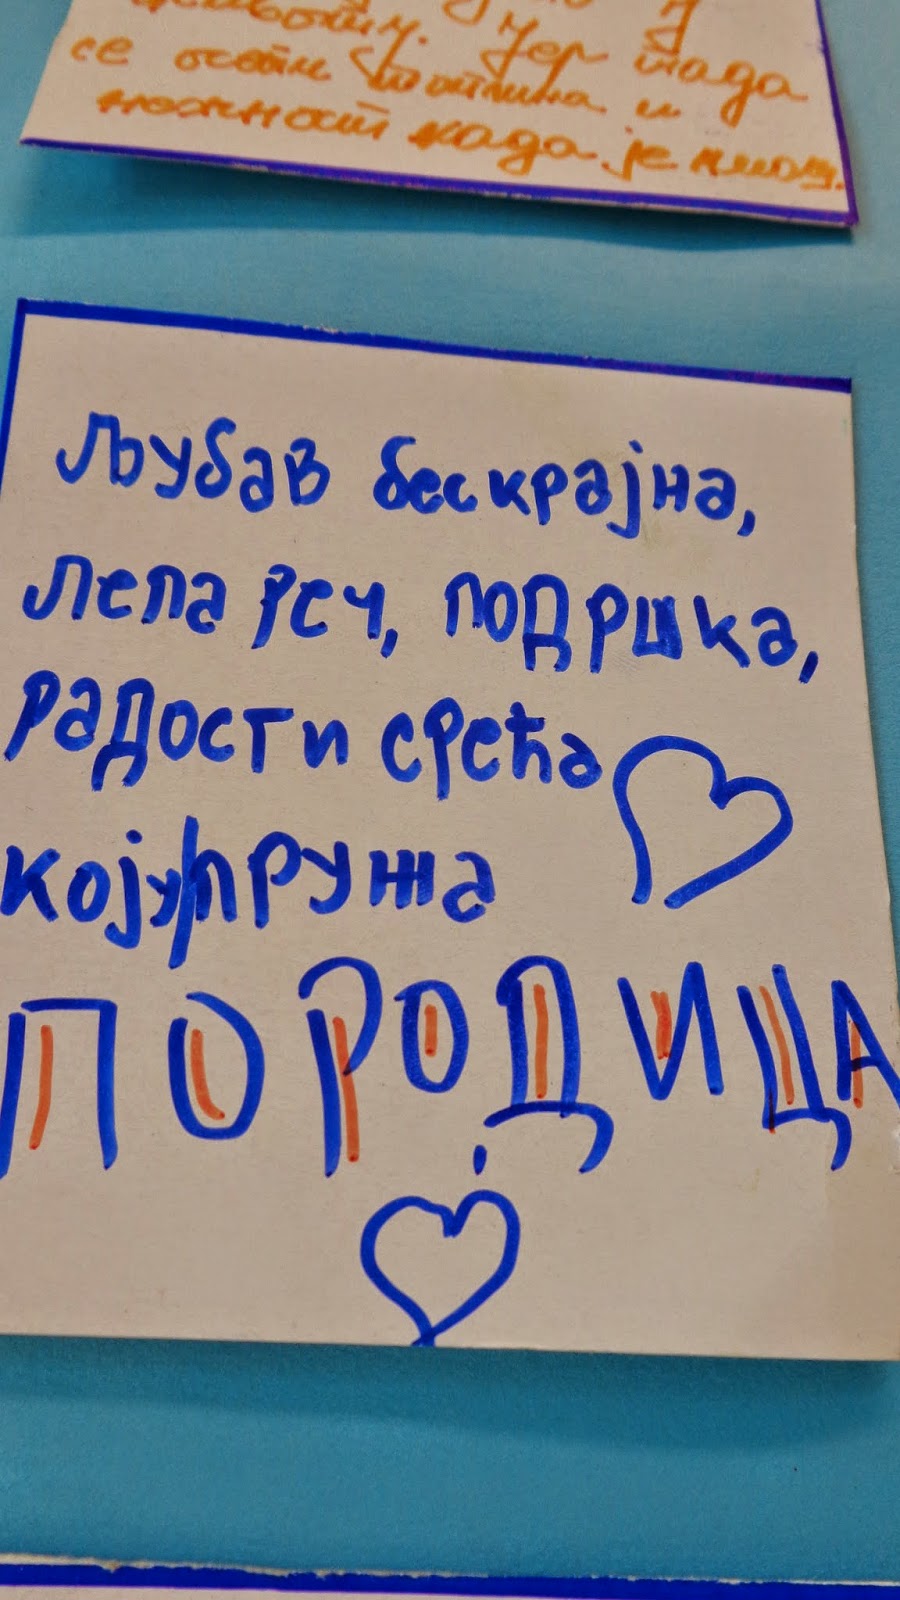 животу. Јер тада
се осети топлина и
нежност када је
Љубав бескрајна,
лепа реч, подршка,
радост и срећа
коју пружа
ПОРОДИЦА